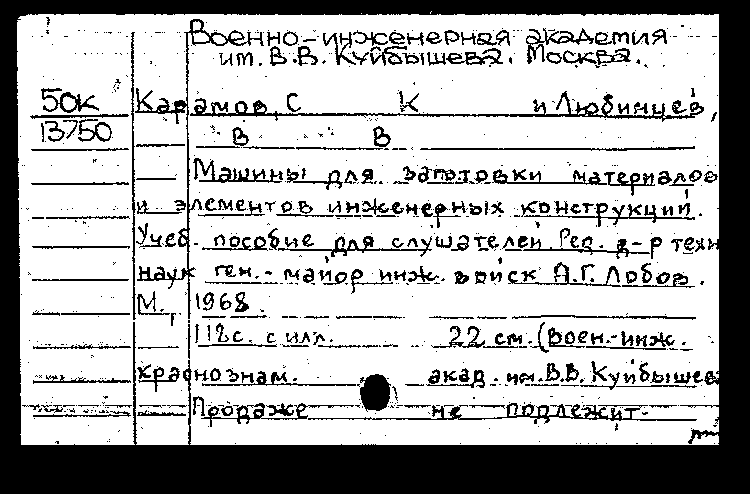 Военно-инженерная академия
им. В.В. Куйбышева. Москва.
50К Карамов, С К и Любимцев,
13750 В В
Машины для заготовки материалов
и элементов инженерных конструкций.
Учеб. пособие для слушателей. Ред. д-р техн
наук ген.-майор инж. войск А.Г. Лобов.
М., 1968.
118с. с илл. 22 см. (Воен.-инж.
краснознам. акад. им. В.В. Куйбышева
Продаже не подлежит.